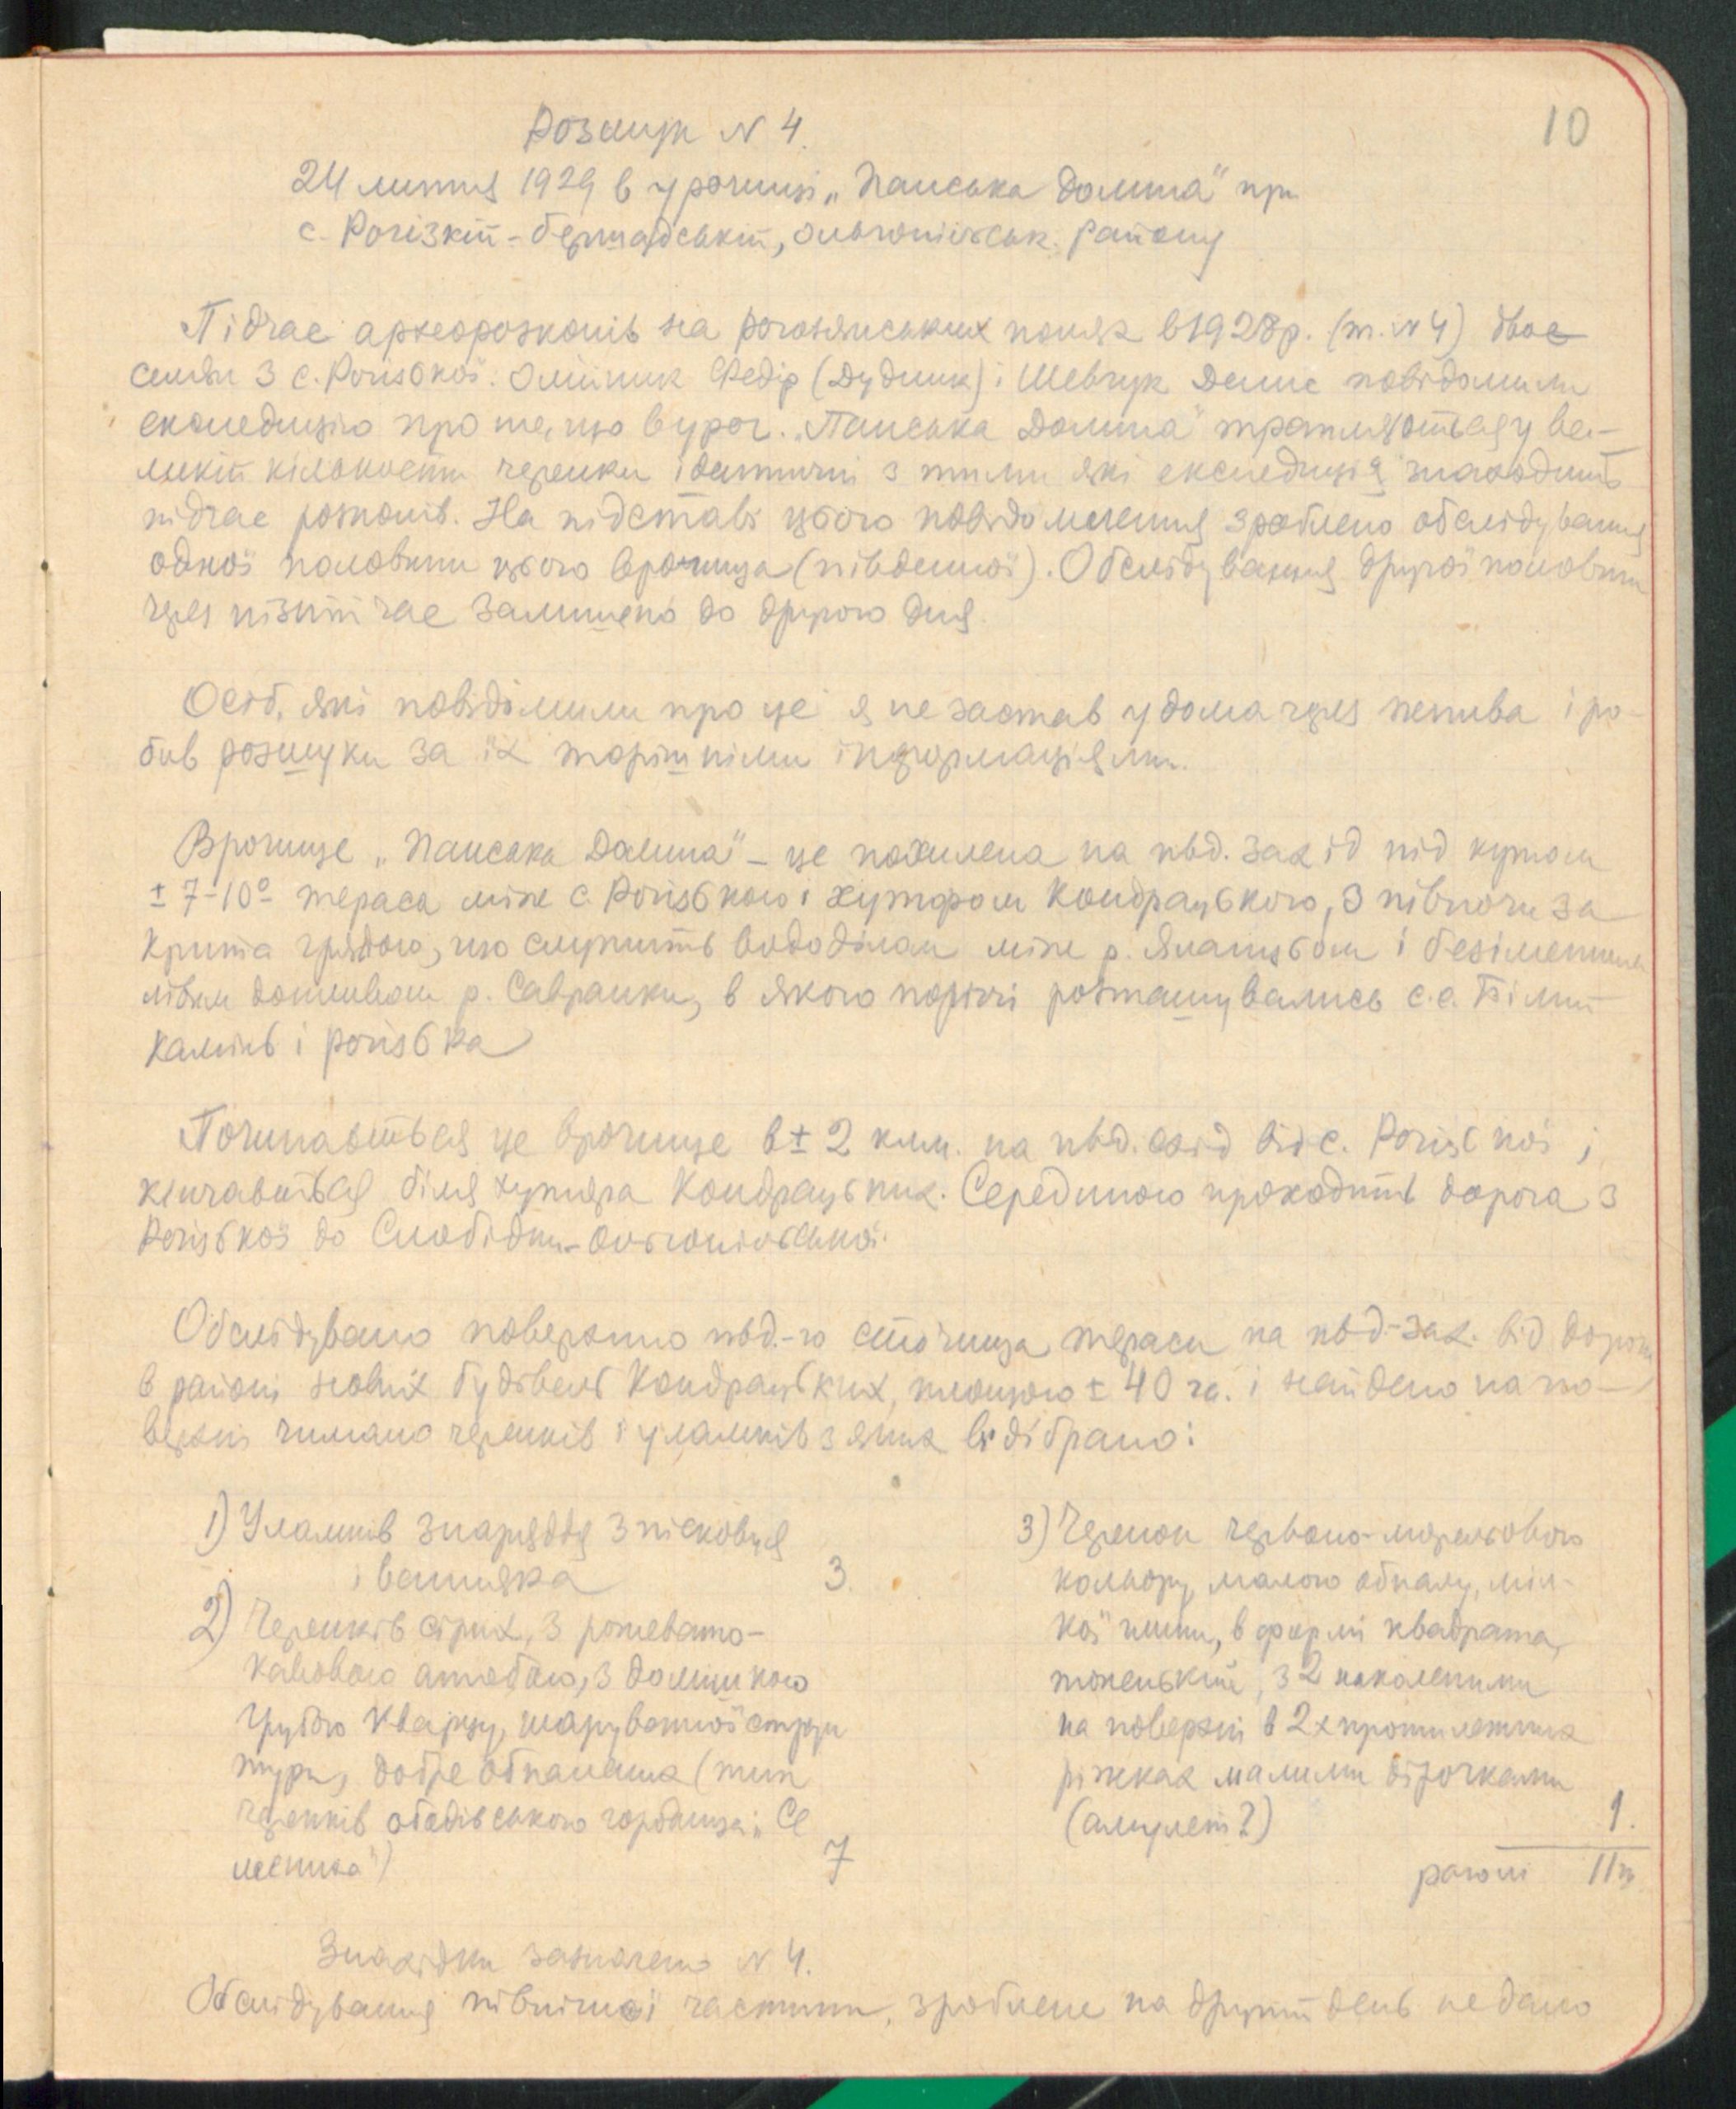 10
Розшук N 4.
24 липня 1929 в урочищі „Панська Долина" при
с. Рогізкій-Бершадській, Ольгопільськ. району
Підчас археорозкопів на рогозянських полях в 1928 р. (т. N 4) двоє
селян з с. Рогізької: Олійник Федір (Дудник) і Шевчук Денис повідомили
експедицію про те, що в уроч. „Панська Долина" трапляються у ве-
ликій кількости черепки ідентичні з тими які експедиція знаходить
підчас розкопів. На підставі цього повідомлення зроблено обслідування
одної половини цього врочища (південної). Обслідування другої половини
через пізній час залишено до другого дня.
Осіб, які повідомили про це я не застав удома через жнива і ро-
бив розшуки за їх торішніми інформаціями.
Врочище „Панська Долина" – це похилена на пвд. захід під кутом
± 7-10° тераса між с. Рогізькою і хутором Кондрацького, з півночи за
крита грядою, що служить вододілом між р. Яланцьом і безіменним
лівим допливом р. Савранки, в якого поріччі розташувались с.с. Білий
Камінь і Рогізька
Починається це врочище в ± 2 клм. на пвд. схід від с. Рогізької і
кінчається біля хутора Кондрацьких. Серединою проходить дорога з
Рогізької до Слобідки-Ольгопільської.
Обслідувано поверхню пвд.-го сточища тераси на пвд-зах. від дороги
в районі нових будівель Кондрацьких, площою ± 40 га. і найдено на по-
верхні чимало черепків і уламків з яких відібрано:
1) Уламків знаряддя з пісковця
і вапняка 3.
2) Черепків сірих, з рожевато-
кавового
з домішкою
грубого кварцу, шаруватої струк
тури, добре обпалених (тип
черепків ободівського городища „Се
менка") 7
3) Черепок червоно-морквового
кольору, малого обпалу, міл-
кої глини, в формі квадрата,
тоненький, з 2 наколеними
на поверхні в 2х протилежних
ріжках малими дірочками
(амулет?) 1.
разом 11
Знахідки зазначено N 4.
Обслідування північної частини, зроблене на другий день не дало